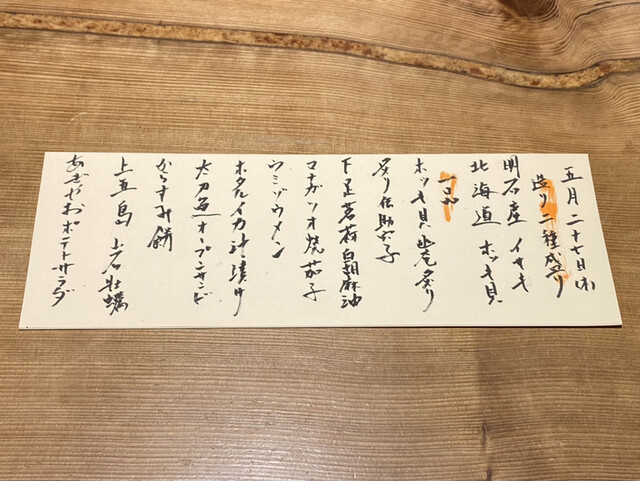 五月二十七日(水)
造り二種盛り
明石産 イサキ
北海道 ホッキ貝
一口品
ホッキ貝 炙り
炙り 茄子
下足 茗荷 白胡麻油
マナガツオ 焼茄子
ウミゾウメン
ホタルイカ 汁漬け
太刀魚 オープンサンド
からすみ餅
上五島 岩牡蠣
あぶやおポテトサラダ